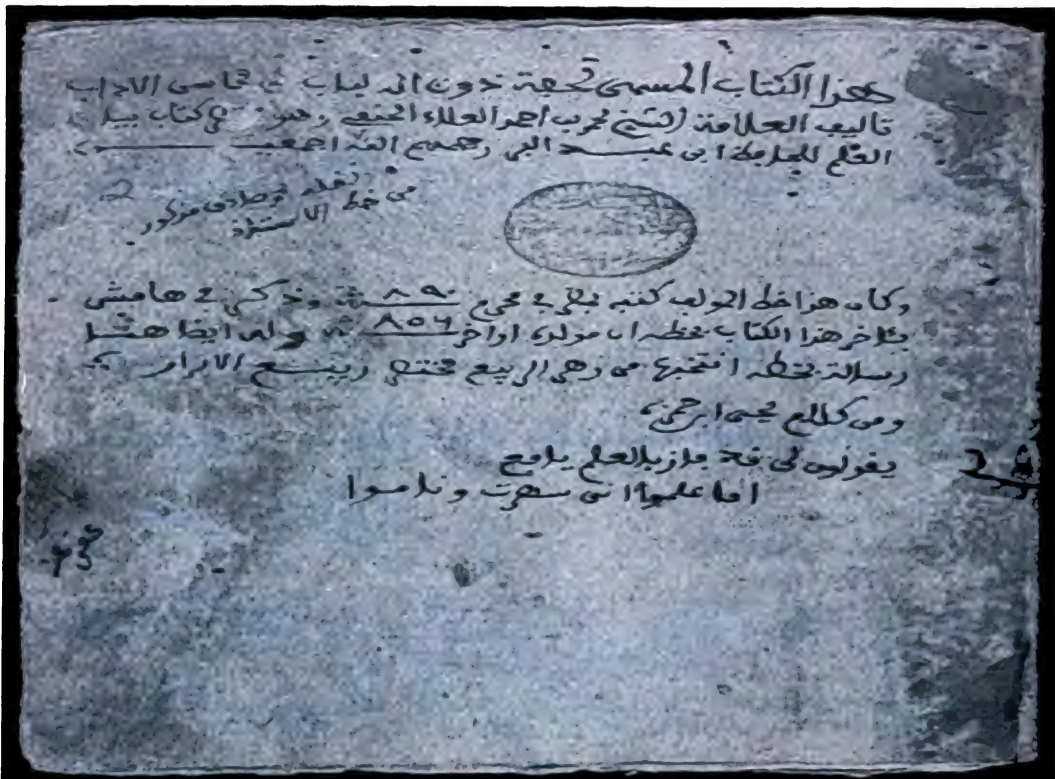 هذا الكتاب المسمى تحفة ذوي الالباب في محاسن الاداب
تاليف العلامة الشيخ محمد بن احمد العلاء الحنفي وهو كتاب بيان
العلم للحافظ ابن عبد البر رحمهم الله اجمعين
نقله مصطفى مذكور
من خط الاستاذ
2
وكان هذا خط المولف كتبه بيده في محرم ٨٩٠ سنة وذكر في هامش
بآخر هذا الكتاب بخطه ان مولده اواخر ٨٥٦ وله ايضا هنا
رسالة بخطه انتخبها من زهر الربيع مختصر ربيع الابرار
ومن كلام
يقولون لي قد فاز بالعلم يافع
اما علموا اني سهرت وناموا